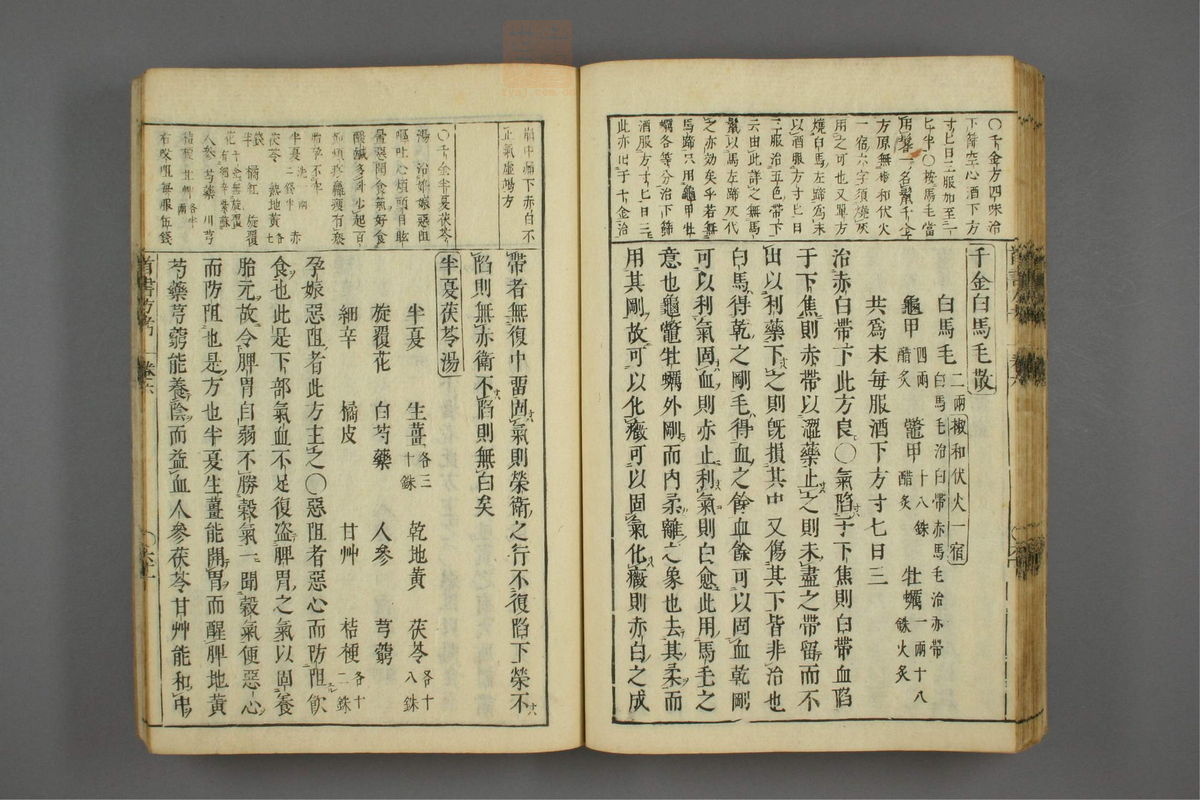 〇千金方四味治
下筛空心酒下方
寸匕日三服加至一
匕半〇按馬毛當
方原無椒和伏火
一宿六字須燒灰
用之可也又單方
燒白馬左蹄爲末
以酒服方寸匕日
三服治五色帶下
云由此詳之無馬
鬣以馬左蹄灰代
之亦効矣乎若無
馬蹄只用龜甲牡
蠣各等分治下篩
酒服方寸匕日三
此亦出于千金治
千金白馬毛散
白馬毛二兩椒和伏火一宿
白馬毛治白帶赤馬毛治赤帶
龜甲四兩醋炙 鼈甲十八銖醋炙 牡蠣一兩十八銖火炙
共爲末每服酒下方寸七日三
治赤白帶下此方良〇氣陷于下焦則白帶血陷
于下焦則赤帶以澀藥止之則未盡之帶留而不
出以利藥下之則旣損其中又傷其下皆非治也
白馬得乾之剛毛得血之餘血餘可以固血乾剛
可以利氣固血則赤止利氣則白愈此用馬毛之
意也龜鼈牡蠣外剛而内柔離之象也去其柔而
用其剛故可以化癥可以固氣化癥則赤白之成
崩中漏下赤白不
止氣虛竭方
〇千金半夏茯苓
湯 治妊娠惡阻
嘔吐心煩頭目眩
半夏
茯苓 熟地黃
橘紅 旋覆
人參 芍藥 川芎
桔梗
帶者無復中留固氣則榮衛之行不復陷下榮不
陷則無赤衛不陷則無白矣
半夏茯苓湯
半夏 生薑各三十銖 乾地黃 茯苓各十八銖
旋覆花 白芍藥 人參 芎藭
細辛 橘皮 甘艸 桔梗各十二銖
孕娠惡阻者此方主之〇惡阻者惡心而防阻飮
食也此是下部氣血不足復盗脾胃之氣以固養
胎元故令脾胃自弱不勝穀氣一聞穀氣便惡心
而防阻也是方也半夏生薑能開胃而醒脾地黄
芍藥芎藭能養陰而益血人參茯苓甘艸能和中